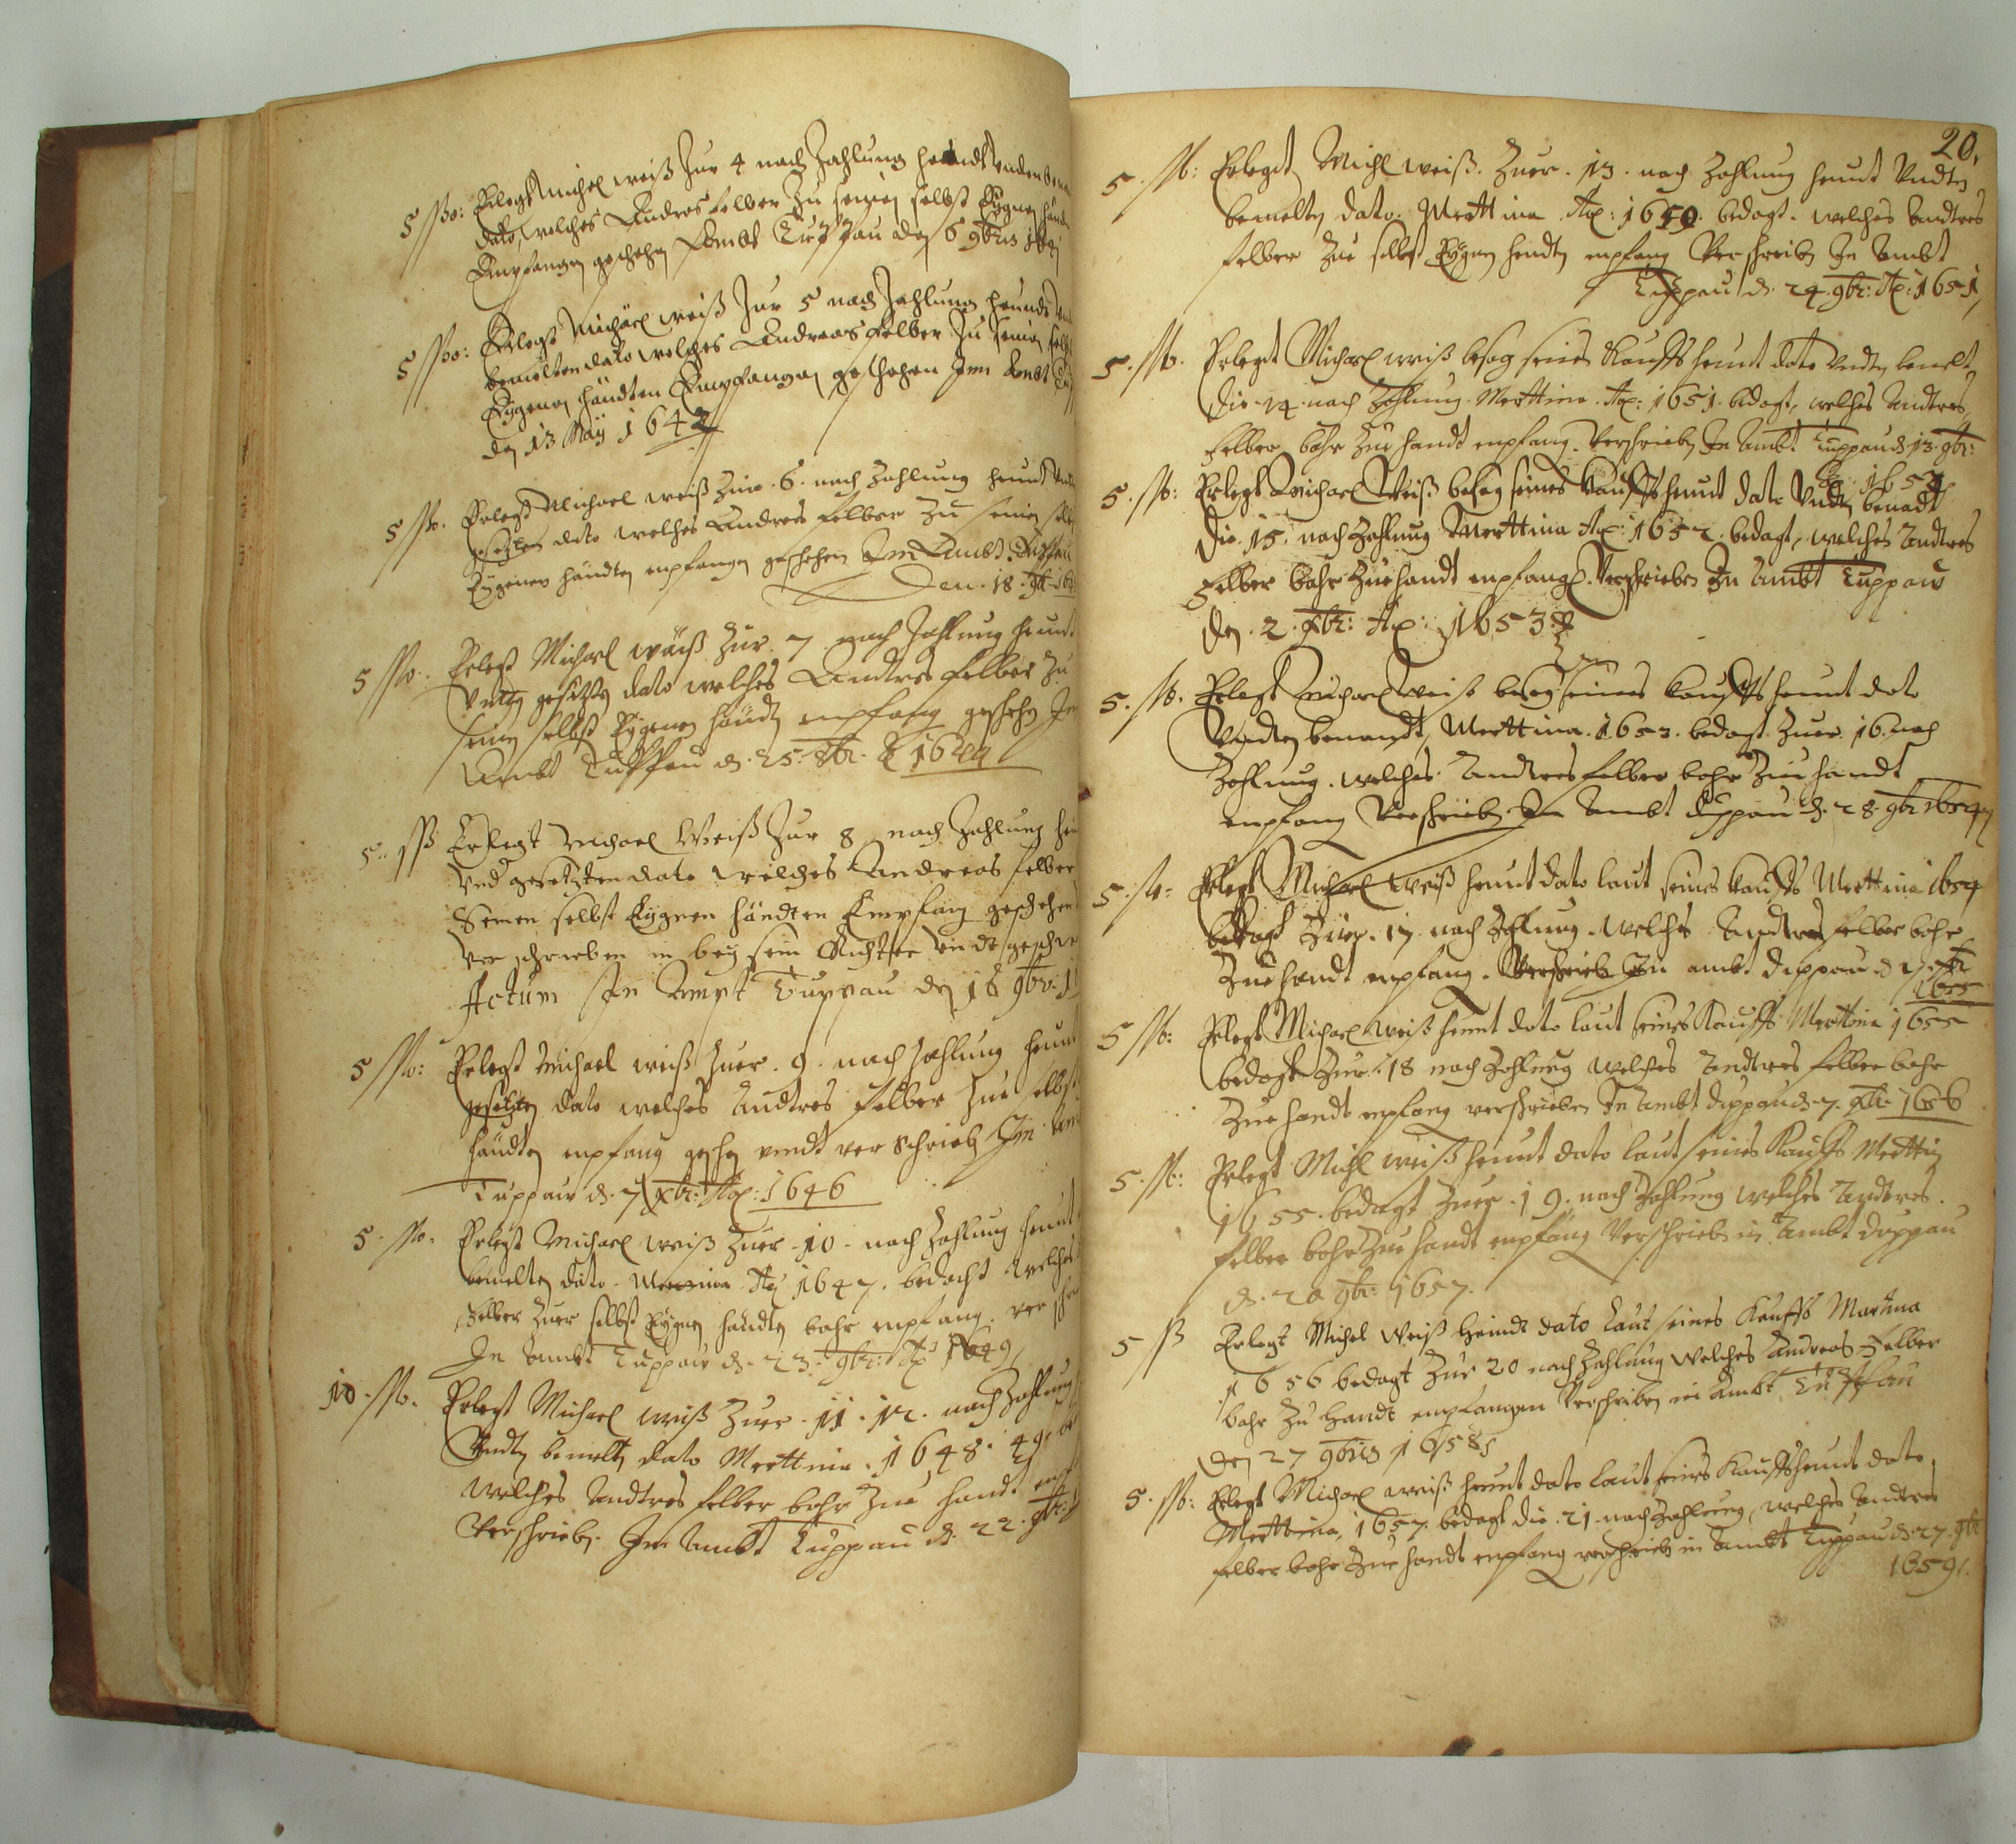 5 ßo: Erlegt Michel weiß Zur 4 nach Zahlung heundt unden
dato, welches Andres Felber Zu seinen selbst Eygnen
Empfangen geschehen Ambt Tuppau den 6 9bris
5 ßo: Erlegt Michael weiß Zur 5 nach Zahlung heundt
bemelten dato welches Andreas Felber Zu seinen
Eygenen händten Empfangen geschehen Im Ambt
den 13 Maÿ 1642
5 ßo. Erlegt Michael weiß Zur. 6. nach Zahlung heundt
gesetzten dato welches Andres Felber Zu seinen
Eygenen händten empfangen geschehen Im Ambt Tuppau
Den. 18. 9br
5 ßo. Erlegt Michael wäiß Zur. 7. nach Zahlung heundt
gesetzten dato welches Andres Felber Zu
seinen selbst Eygenen händten empfang geschehen In
Ambt Tuppau d. 25. 1644
5. ß Erlegt Michael Weiß Zur 8 nach Zahlung
Und gesetzten dato welches Andreas Felber
Seinen selbst Eygnen händten Empfang geschehen
ver schrieben in beÿ sein Richter Undt
Actum In Ampt Tuppau den 18 9br:
5 ßo: Erlegt Michael weiß Zuer. 9. nach Zahlung heundt
gesetzten dato welches Andres Felber Zue selbst
händten empfang vndt ver schrieb Im
Tuppau d. 7 xbr: Ao: 1646
5. ßo. Erlegt Michael weiß Zuer. 10. nach Zahlung heundt
bemelten dato. Ao 1647. bedacht welches
Felber Zuer selbst Eygnen händten bahr empfang.
In Ambt Tuppau d. 23. 9br: Ao 1649
10. ßo. Erlegt Michael weiß Zuer. 11. 12. nach Zahlung
Undten bemelten dato Merttini. 1648. 49.
welches Andtres Felber bahr Zue handt
Verschrieb. Im Ambt Tuppau d. 22. 9br:
20.
5. ßo: Erlegt Michl weiß. Zuer. 13. nach Zahlung heunt Undten
bemelten dato. Merttina Ao: 1650. bedagt. welches Andtres
Felber Zue selbst Eygnen hendten empfang Verschrieben In Ambt
Tuppau d. 24. 9br: Ao: 1651
5. ßo. Erlegt Michael weiß besag seines Kauffs heunt dato Undten bemelt
Die. 14. nach Zahlung. Merttina. Ao: 1651. bedagt, welches Andtres
Felber bahr Zue handt empfang. Verschrieben In Ambt Tuppau d. 13. 9br:
5. ßo: Erlegt Michael Weiß besag seines Kauffs heunt dato Undten benandt
Die. 15. nach Zahlung Merttina Ao: 1652. bedagt, welches Andtres
Felber bahr Zue handt empfang. Verschrieben In Ambt Tuppau
den. 2. xbr: Ao: 1653
5. ßo. Erlegt Michael Weiß besag seines Kauffs heunt dato
Undten benandt, Merttina. 1653. bedagt Zuer. 16. nach
Zahlung. welches Andtres Felber bahr Zue handt
empfang Verschrieben In Ambt Tuppau d. 28. 9br 1654
5. ßo: Erlegt Michael Weiß heunt dato laut seines Kauffs Merttina 1654
bedagt Zuer. 17. nach Zahlung. welches Andtres Felber bahr
Zue handt empfang. Verschrieb In ambt Duppau
1655
5 ßo: Erlegt Michael weiß heunt dato laut seines Kauffs Merttina 1655
bedagt Zur. 18 nach Zahlung welches Andtres Felber bahr
Zue handt empfang verschrieben In Ambt Duppau d. 7. xbr. 1656
5. ßo: Erlegt Michl weiß heunt dato laut seines Kauffs
1655. bedagt Zuer. 19. nach Zahlung welches Andtres.
Felber bahr Zue handt empfang Verschrieben in Ambt Duppau
d. 20 9br: 1657.
5 ß Erlegt Michel Weiß heundt dato Laut seines Kauffs Martina
1656 bedagt Zur 20 nach Zahlung welches Andreas Felber
bahr Zu Handt empfangen Verschrieben in Ambt Tuppau
den 27 9bris 1658
5. ßo: Erlegt Michael weiß heunt dato laut seines Kauffs heunt dato
Merttina, 1657. bedagt die. 21. nach Zahlung, welches Andtres
Felber bahr Zue handt empfang verschrieben in Ambt Tuppau d. 27. 9br
1659.